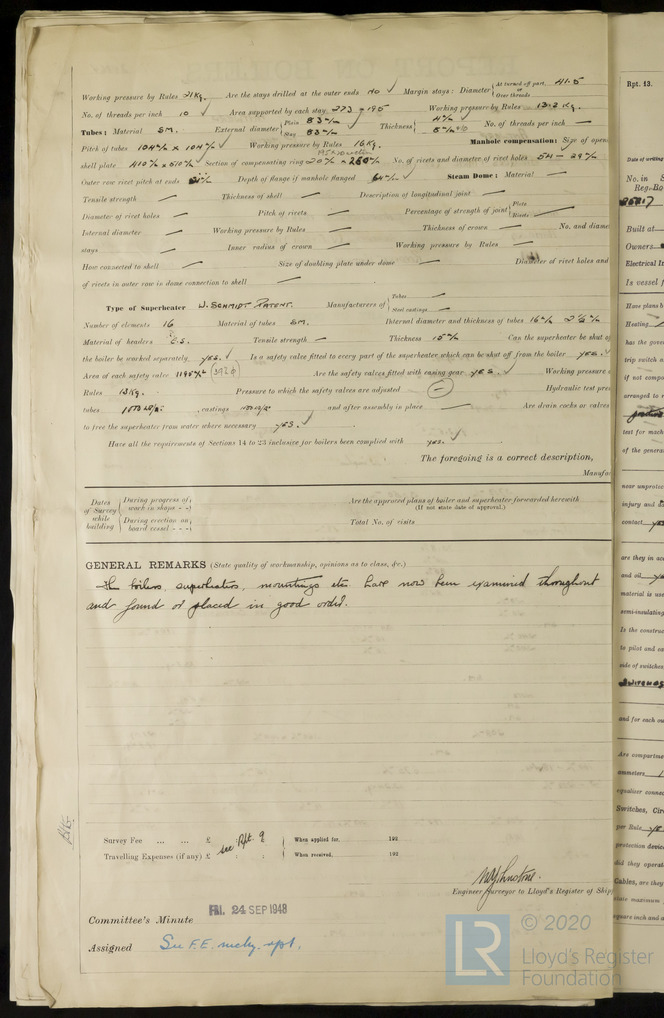 Working pressure by Rules 21 Kg. Are the stays drilled at the outer ends No ✓ Margin stays: Diameter { At turned off part 41.5 or Over threads —
No. of threads per inch 10 ✓ Area supported by each stay 273 × 195 Working pressure by Rules 13.2 Kg.
Tubes: Material SM. External diameter { Plain 83 m/m Stay 83 m/m Thickness { 4 m/m No. of threads per inch —
Pitch of tubes 104 m/m × 104 m/m ✓ Working pressure by Rules 16 Kg. Manhole compensation: Size of open
shell plate 410 m/m × 510 m/m ✓ Section of compensating ring No. of rivets and diameter of rivet holes 54 - 29 m/m
Outer row rivet pitch at ends Depth of flange if manhole flanged ✓ Steam Dome: Material —
Tensile strength — Thickness of shell — Description of longitudinal joint —
Diameter of rivet holes — Pitch of rivets — Percentage of strength of joint { Plate — Rivets —
Internal diameter — Working pressure by Rules — Thickness of crown — No. and diame
stays — Inner radius of crown — Working pressure by Rules —
How connected to shell — Size of doubling plate under dome — Diameter of rivet holes and
of rivets in outer row in dome connection to shell —
Type of Superheater W. Schmidt Patent. Manufacturers of { Tubes — Steel castings —
Number of elements 16 Material of tubes SM. Internal diameter and thickness of tubes 16 m/m 2½ m/m
Material of headers C.S. Tensile strength — Thickness 15 m/m Can the superheater be shut of
the boiler be worked separately yes. ✓ Is a safety valve fitted to every part of the superheater which can be shut off from the boiler yes. ✓
Area of each safety valve 1195 m/m² (39.2 ϕ) Are the safety valves fitted with easing gear yes. ✓ Working pressure
Rules 13 Kg. Pressure to which the safety valves are adjusted — Hydraulic test pre
tubes , castings and after assembly in place — Are drain cocks or valves
to free the superheater from water where necessary yes. ✓
Have all the requirements of Sections 14 to 23 inclusive for boilers been complied with yes. ✓
The foregoing is a correct description,
Manufac
Dates of Survey while building { During progress of work in shops - - } { During erection on board vessel - - - }
Are the approved plans of boiler and superheater forwarded herewith
(If not state date of approval.)
Total No. of visits
GENERAL REMARKS (State quality of workmanship, opinions as to class, &c.)
The boilers, superheaters, mountings etc. have now been examined throughout
and found or placed in good order.
Survey Fee ... ... £ : : When applied for, 192
see Rpt. 9
Travelling Expenses (if any) £ : : When received, 192
Engineer Surveyor to Lloyd's Register of Ship
Committee's Minute FRI. 24 SEP 1948
Assigned See F.E. mchy. rpt.
Rpt. 13.
Date of writing
No. in S
Reg. Bo
Built at
Owners
Electrical In
Is vessel f
Have plans b
Heating
has the gove
trip switch o
if not compo
arranged to r
test for mach
of the genera
near unprotec
injury and da
contact yes
are they in acc
and oil
material is use
semi-insulating
Is the construc
to pilot and ea
side of switches
and for each ou
Are compartme
ammeters
equalizer connec
Switches, Circ
per Rule
protection device
did they operat
Cables, are they
state maximum
square inch and a
LR © 2020
Lloyd's Register
Foundation